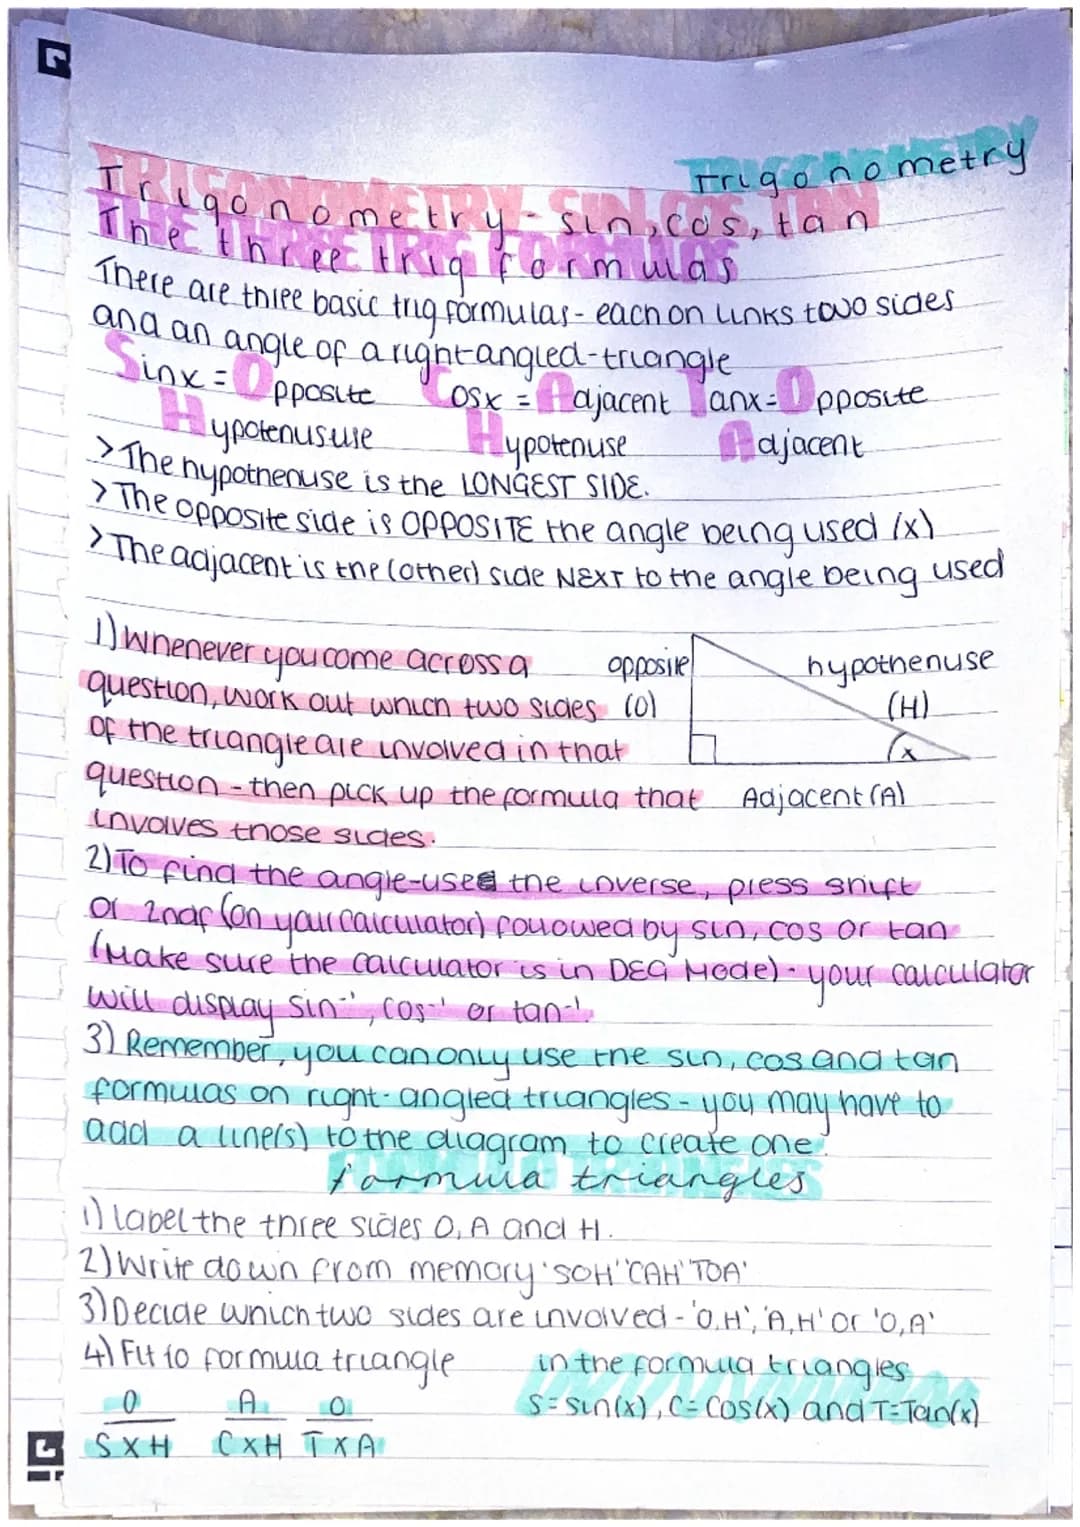 Trigonometry
Trigonometry - sin, cos, tan
The three trig formulas
There are three basic trig formulas - each on links two sides
and an angle of a right angled-triangle
Sinx = Opposite Cosx = Adjacent Tanx = Opposite
Hypotenusuie Hypotenuse Adjacent
> The hypothenuse is the LONGEST SIDE.
> The opposite side is OPPOSITE the angle being used (x)
> The adjacent is the (other) side NEXT to the angle being used
1) Whenever you come across a
question, work out which two sides
of the triangle are involved in that
question - then pick up the formula that
involves those sides.
opposite
(O)
hypothenuse
(H)
x
Adjacent (A)
2) To find the angle-use the inverse, press shift
or 2ndf (on your calculator) followed by sin, cos or tan
(Make sure the calculator is in DEG Mode) - your calculator
will display sin-¹, cos-¹ or tan-¹.
3) Remember, you can only use the sin, cos and tan
formulas on right-angled triangles - you may have to
add a line(s) to the diagram to create one.
formula triangles
1) label the three sides O, A and H.
2) Write down from memory 'SOH' 'CAH' 'TOA'
3) Decide which two sides are involved - 'O,H', 'A,H' or 'O,A'
4) Fit to formula triangle
O A O
S X H C X H T X A
in the formula triangles
S = sin(x), C = Cos(x) and T = Tan(x)